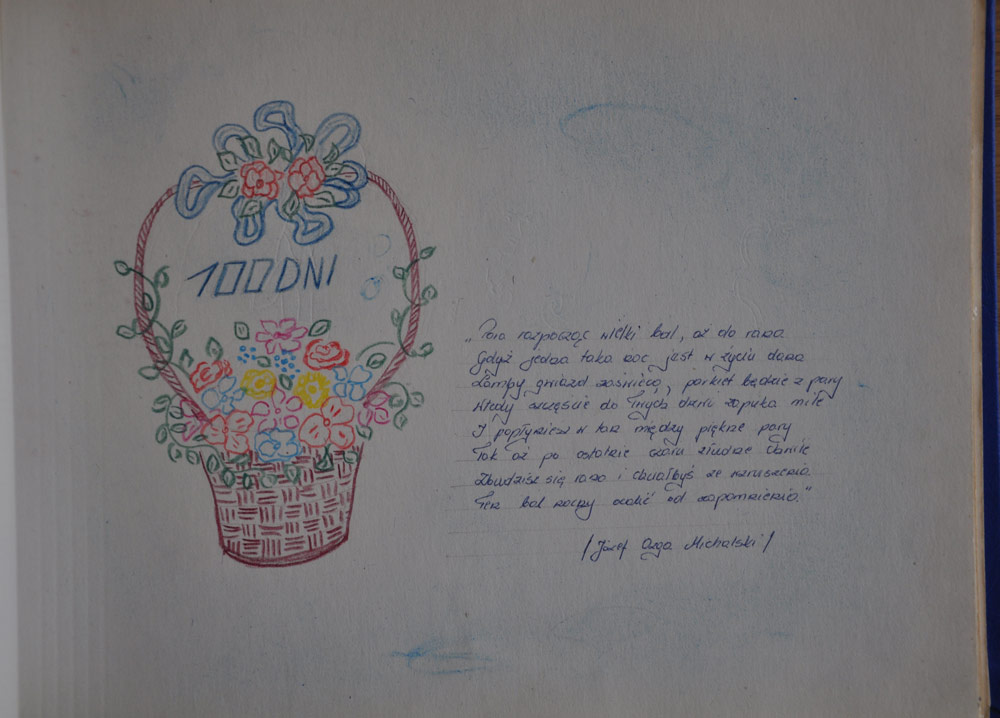 100 DNI
„Pora rozpocząć wielki bal, aż do rana
Gdyż jedna taka noc jest w życiu dana
Lampy gwiazd zaświecą, parkiet będzie z pary
Wtedy szczęście do Twych drzwi zapuka mile
I popłyniesz w tan między piękne pary
Tak aż po ostatnie czaru złudne chwile
Zbudzisz się rano i chciałbyś ze wzruszenia
Ten bal nocny ocalić od zapomnienia."
/Józef Ozga Michalski/